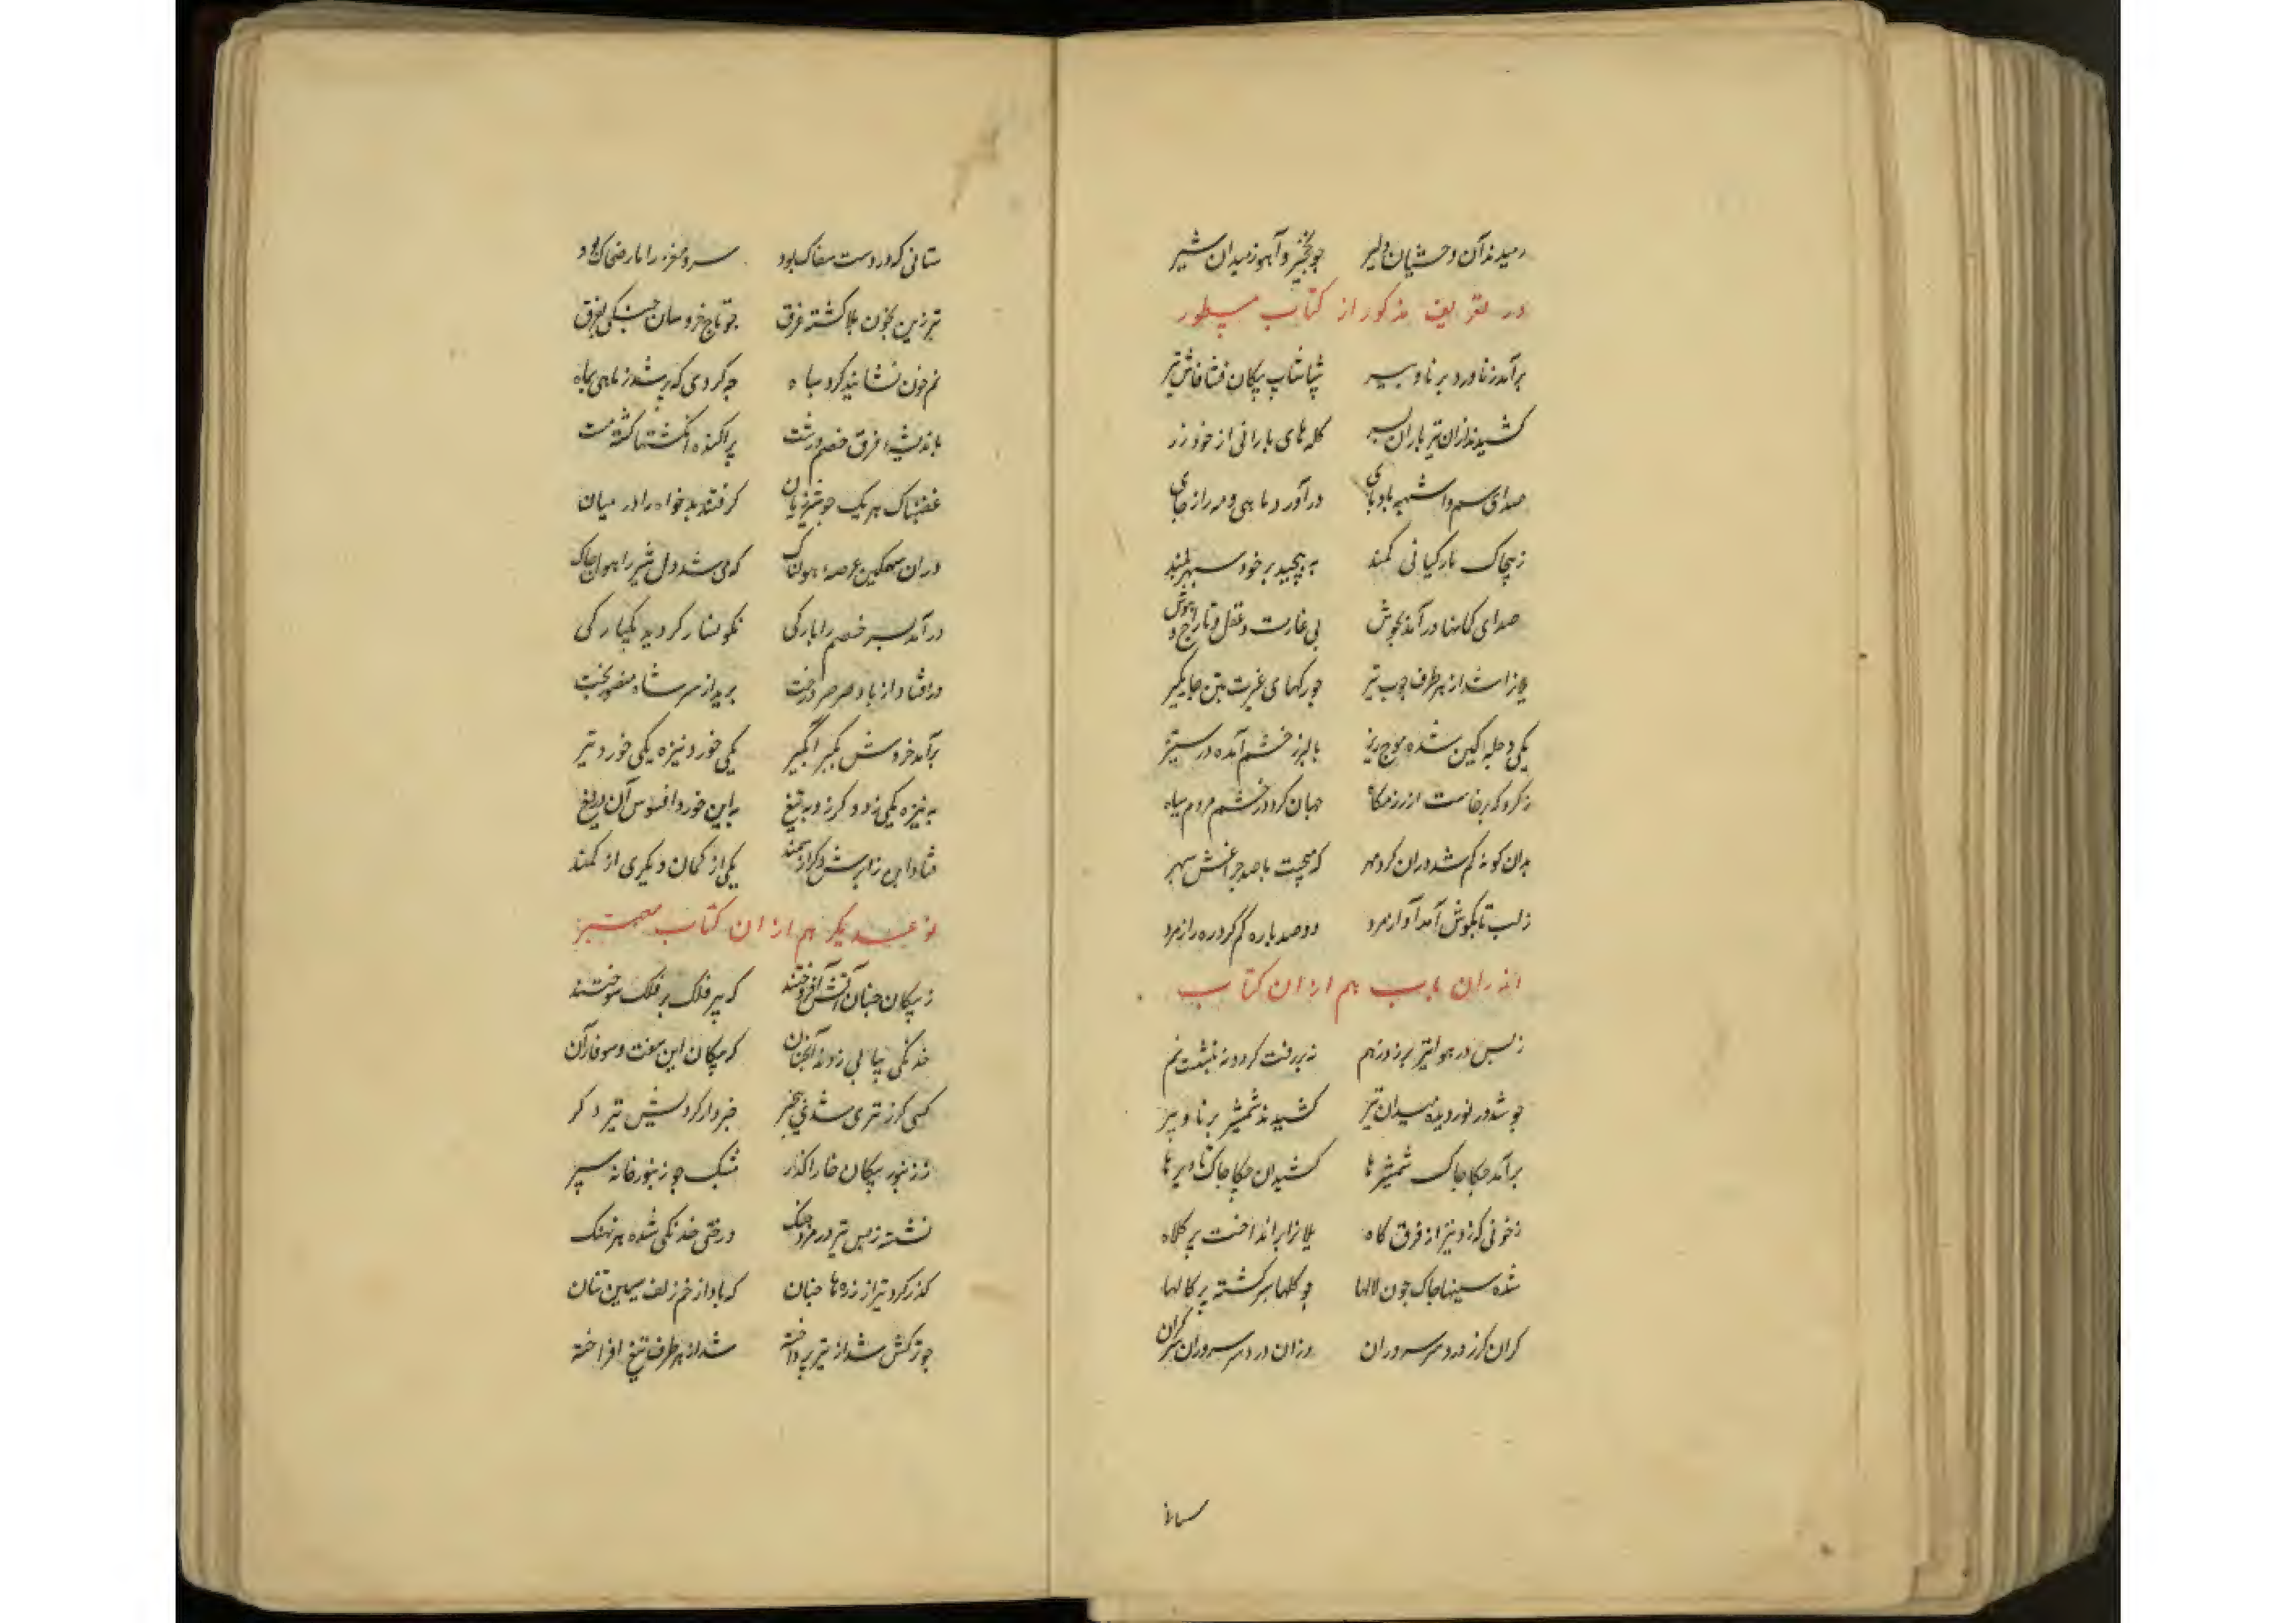 رمیدند آن وحشیان دلیر چو نخجیر و آهو ز میدان شیر
در تعریف مذکور از کتاب مسطور
برآمد ز ناورد برنا و پیر شپاشاپ پیکان فشافاش تیر
کشیدند ازان تیرباران بسر کله‌های بارانی از خود زر
صدای سم و اشهب بادپای درآورد ماهی و مه را ز جای
ز پیچاک مار کیانی کمند به پیچید بر خود سپهر بلند
صدای کمانها درآمد بجوش پی غارت عقل و تاراج هوش
شد از هر طرف چوب تیر چو رکهای غیرت بتن جایگیر
یکی دجله کین شده موج ریز بالبرز خشم آمده در ستیز
ز کردی که برخاست از رزمگاه جهان کرد در چشم مردم سیاه
بدان کونه گم شد دران کرد مهر که میجست با صد چراغش سپهر
ز لب تا بگوش آمد آواز مرد دو صد باره گم کرد ره را ز کرد
اندران باب هم ازان کتاب
ز بس در هوا تیر بر زد بهم نه بر رفت کرد و نه بنشست نم
چو شد در نوردیده میدان تیر کشیدند شمشیر برنا و پیر
برآمد چکاچاک شمشیرها کشیدان چکاچاک تا دیرها
ز خونی که زد تیز از فرق کاه یلانرا برانداخت پر کلاه
شده سینها چاک چون لالها چو کلها سر کشته پرکالها
کران کرز در دو سر سروران وزان درد سر سروران سرکران
سنانی که در دست سفاک بود سر و مغز را مار ضحاک بود
تبرزین بخون یلان کشته غرق چو تاج خروسان جنگی بفرق
نم خون نشانید کرد سپاه چه کردی که بر شد ز ماهی بماه
پراکنده انگشتها کشته مشت
غضبناک هر یک چو شیر ژیان کرفتند بدخواه را در میان
دران سهمکین عرصه هولناک که می شد دل شیر را هول چاک
درآمد بسر خصم را بارکی نکونسار کردید یکبارکی
درافتاد از باد صرصر درخت برید از سر شاه منصور بخت
برآمد خروش بگیر ا بگیر یکی خورد نیزه یکی خورد تیر
به نیزه یکی زد دکر زد به تیغ به این خورد افسوس آن دریغ
فتاد این ز ابرش و کر از سمند یکی از کمان و دیکری از کمند
نوع دیکر هم ازان کتاب معتبر
ز پیکان چنان آتش افروختند که پر فلک بر فلک سوختند
خدنکی پیاپی زدند آنچنان که پیکان این سفت و سوفار آن
کسی کز تیری شدی بیخبر خبردار کردیش تیر دکر
ز زنبور پیکان خارا کذار مشبک چو زنبورخانه سپر
نشسته ز بس تیر در مرد جنک درختی خدنکی شده هر نهنک
کذر کرد تیر از زره‌ها چنان که باد از خم زلف سیمین تنان
چو ترکش شد از تیر پرداخته شد از هر طرف تیغ افراخته